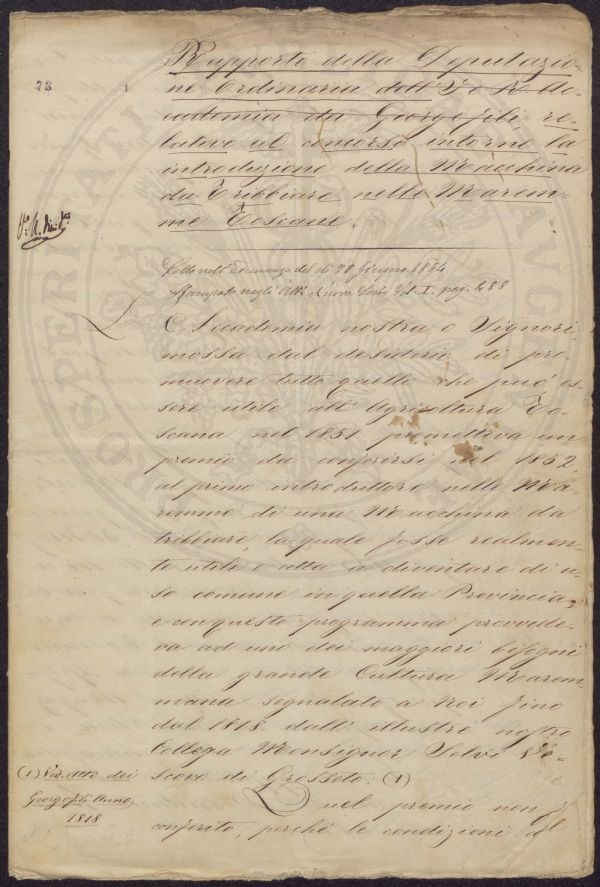 Rapporto della Deputazio-
ne Ordinaria dell' I e R Ac-
73 1
cademia dei Georgofili re-
lativo al concorso intorno la
introduzione della Macchina
da Tribbiare nelle Marem-
me Toscane.
Letto nell'adunanza del dì 28 Giugno 1854
Stampato negli Atti, Nuova Serie Vol. I. pag. 488
L'Accademia nostra o Signori
mossa dal desiderio di pro-
muovere tutto quello che può es-
sere utile all'Agricoltura To-
scana nel 1851 prometteva un
premio da conferirsi nel 1852,
al primo introduttore nelle Ma-
remme di una Macchina da
tribbiare, la quale fosse realmen-
te utile e atta a diventare di u-
so comune in quella Provincia,
e con questo programma provvede-
va ad uno dei maggiori bisogni
della grande Cultura Marem-
mana segnalato a Noi fino
dal 1818. dall'illustre nostro
Collega Monsignor Selvi Ve-
scovo di Grosseto. (1)
(1) Ved. Atti dei
Georgofili Anno
1818
Quel premio non f
conferito, perché le condizioni d